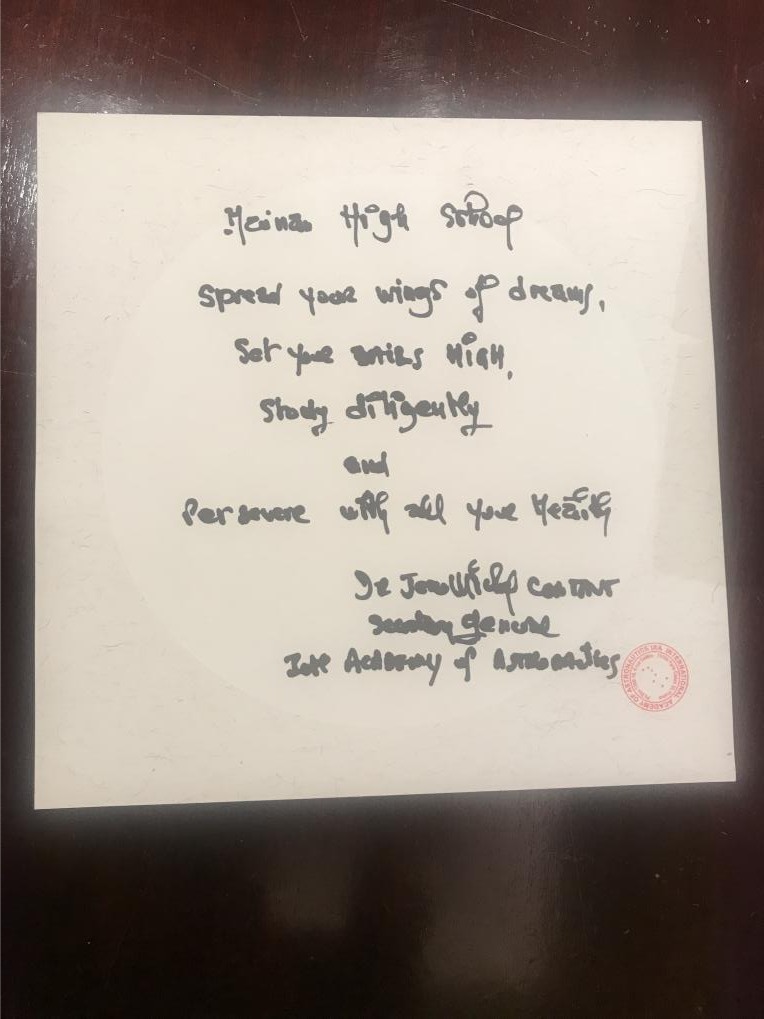 High School
Spread your wings of dreams,
Set your sails HIGH,
Study diligently
and
Persevere with all your
Dr Jean-Michel CONTANT
Secretary General
Academy of Astronautics
INTERNATIONAL ACADEMY OF ASTRONAUTICS IAA